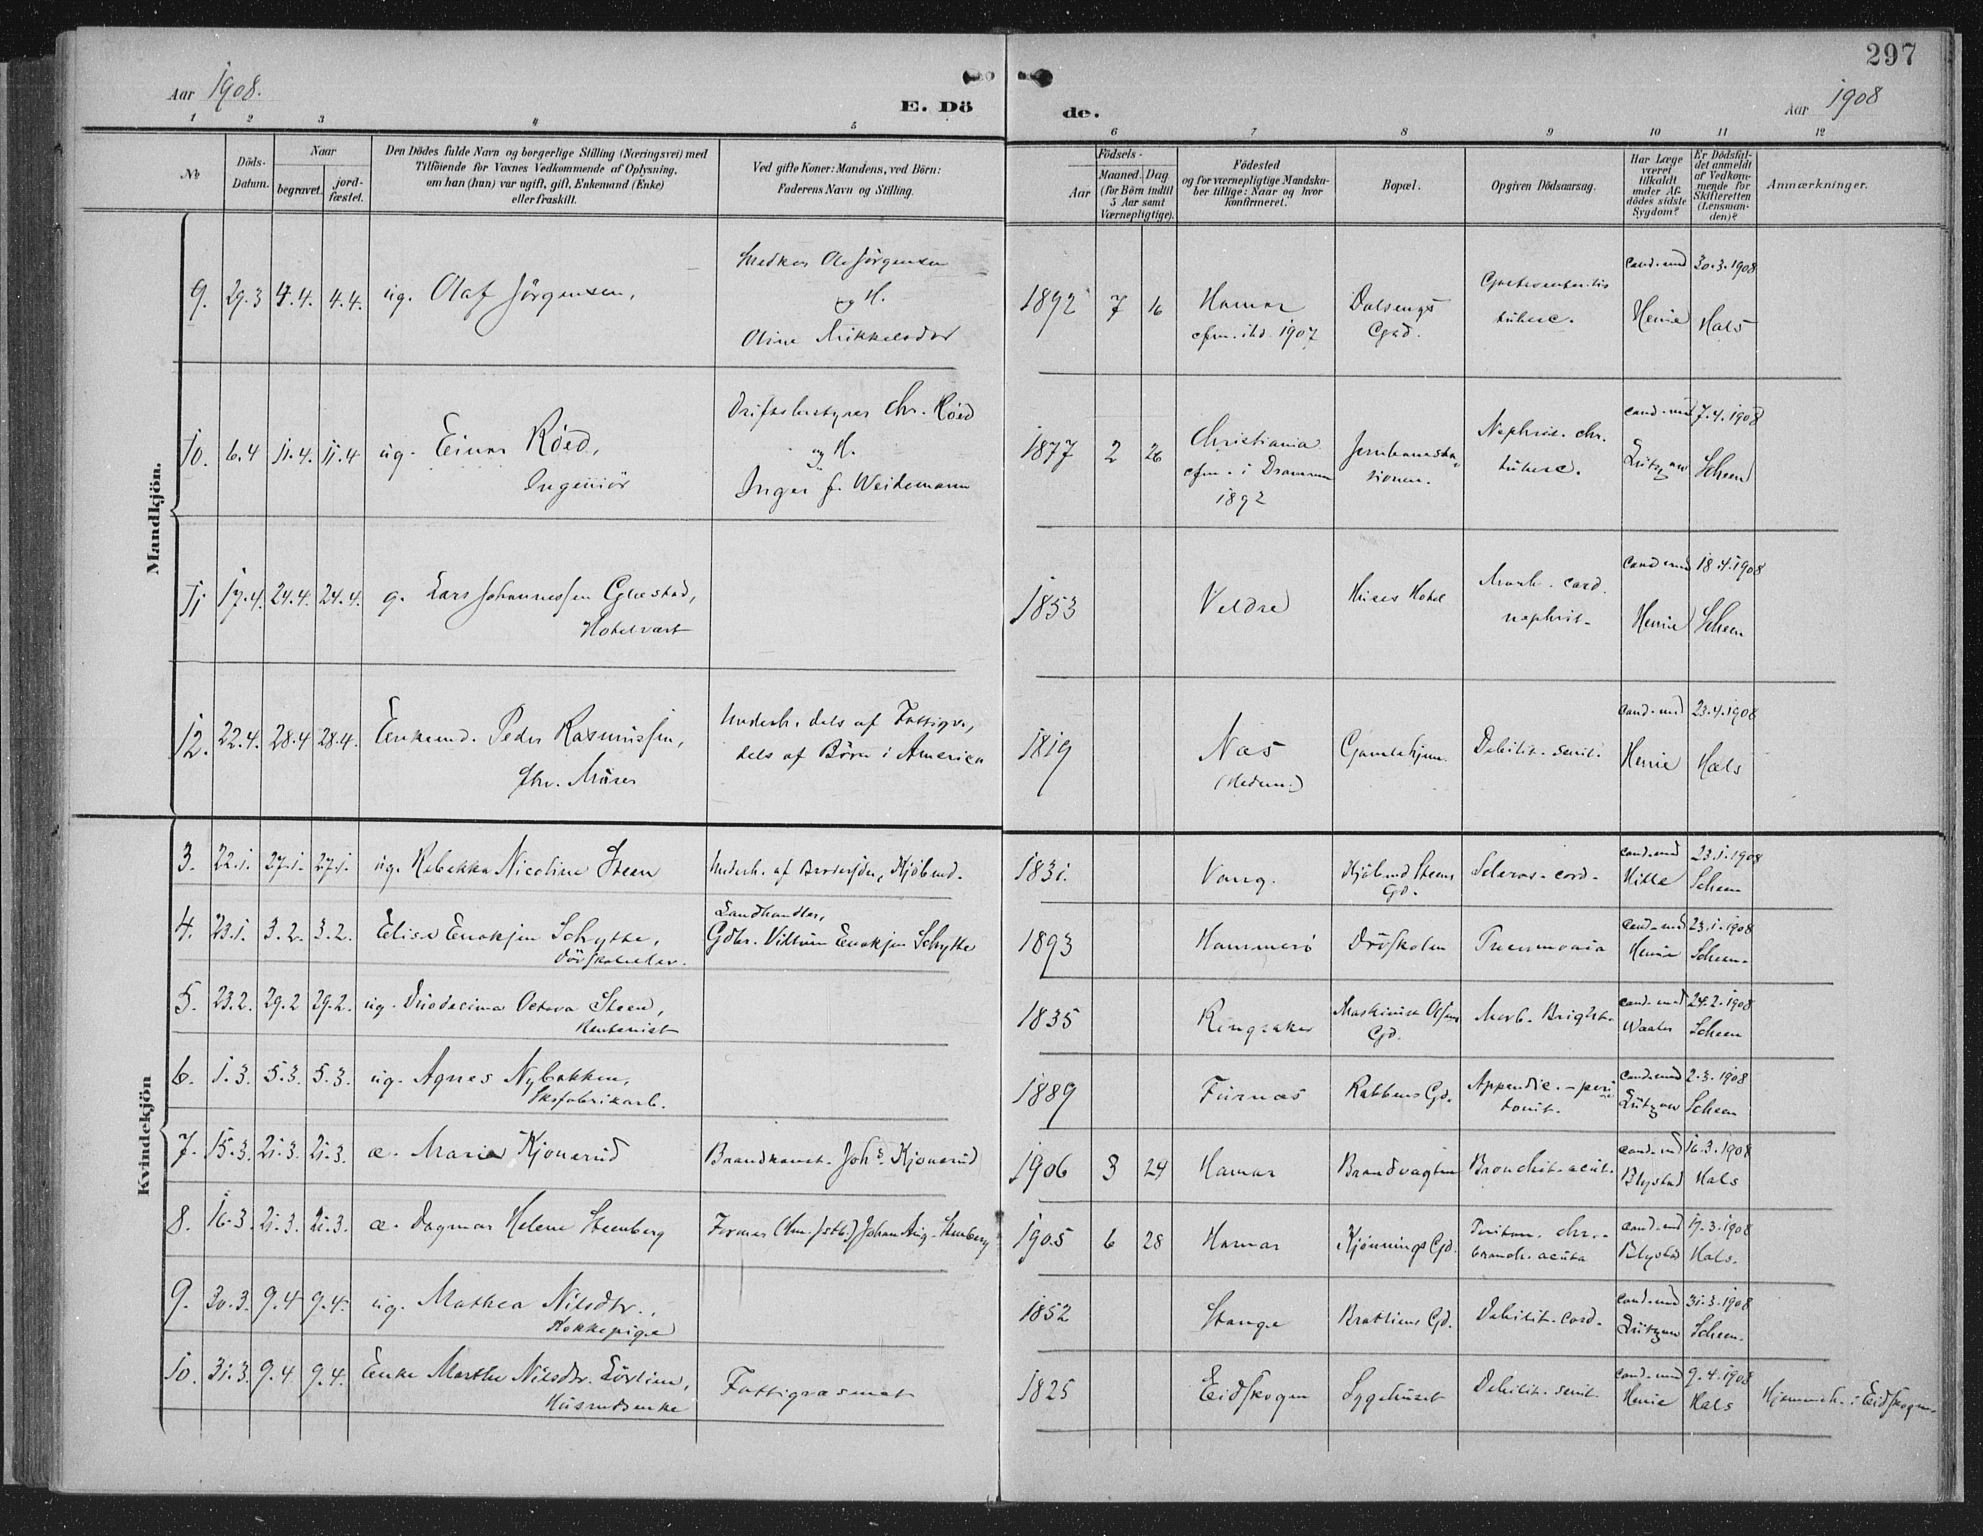 297
Aar 1908.
E. Dö
de.
Aar 1908
1 2 3 4 5 6 7 8 9 10 11 12
No
Döds-
Datum.
Naar
begravet.
jord-
fæstet.
Den Dödes fulde Navn og borgerlige Stilling (Næringsvei) med
Tilföiende for Voxnes Vedkommende af Oplysning,
om han (hun) var ugift, gift, Enkemand (Enke)
eller fraskilt.
Ved gifte Koner: Mandens, ved Börn:
Faderens Navn og Stilling.
Födsels-
Aar
Maaned. Dag
(for Börn indtil
5 Aar samt
Værnepligtige).
Födested
og for værnepligtige Mandska-
ber tillige: Naar og hvor
konfirmeret.
Bopæl.
Opgiven Dödsaarsag.
Har Læge
været
tilkaldt
under Af-
dödes sidste
Sygdom?
Er Dödsfal-
det anmeldt
af Vedkom-
mende for
Skifteretten
(Lensman-
den)?
Anmærkninger.
Mandkjön.
9. 29.3 4.4. 4.4. ug. Olaf Jörgensen,
Ole Jörgensen
og H.
Oline Mikkelsdtr
1892 7 16 Hamar
cfm. ibd. 1907
Dalsengs
Cgd.
tuberc.
cand. med
Henie
30.3.1908
Hals
10. 6.4 11.4. 11.4 ug. Einar Röed,
Ingeniör
Driftsbestyrer Chr. Röed
og H.
Inger f. Weidemann
1877 2 26 Christiania
cfm. i Drammen
1892
Jernbanesta-
tionen.
Nephrit. chr.
tuberc.
cand. med
Lützow
7.4.1908
Scheen
11 17.4. 24.4. 24.4. g. Lars Johannessen Græstad,
Hotelvært
1853 Veldre
Huses Hotel
Morb. cord.
nephrit.
cand med
Henie
18.4.1908
Scheen
12. 22.4. 28.4 28.4. Enkemd. Peder Rasmussen,
fhv. Murer
Underh. dels af Fattigv.,
dels af Börn i America
1819 Næs
(Hedem.)
Gamlehjem.
Debilit. senil.
cand. med
Henie
23.4.1908
Hals
Kvindekjön
3. 22.1. 27.1. 27.1. ug. Rebekka Nicoline Steen
Underh. af Kjöbmd.
1831. Vang.
Kjöbmd Steens
Gd.
Scleros. cord.
cand. med
Hille
23.1.1908
Scheen
4. 23.1. 3.2. 3.2. Elise Enoksen Schytte,
Landhandler,
Gdbr. Villum Enoksen Schytte
1893 Hammerö Dövskolen Pneumonia
cand. med
Henie
23.1.1908
Scheen.
5. 23.2. 29.2 29.2. ug. Duodecima Octava Steen,
Rentenist
1835 Ringsaker
Maskinist Olsens
Gd.
Morb. Brightii
cand. med
Waaler
24.2.1908
Scheen
6. 1.3. 5.3. 5.3. ug. Agnes Nybakken,
Skofabrikarb.
1889 Furnæs Rabbens Gd.
Appendic. - peri
tonit.
cand. med
Lützow
2.3.1908
Scheen
7. 15.3. 21.3. 21.3. æ. Marie Kjonerud
Brandkonst. Johs. Kjonerud
1906 3 24 Hamar Brandvagten Bronchit. acut.
cand. med
Blystad
16.3.1908
Hals
8. 16.3. 21.3. 21.3. æ. Dagmar Helene Steenberg
Former (Hm. Jstb.) Johan Aug. Steenberg
1905 6 28 Hamar Kjönnings Gd.
chr.-
bronch. acuta
cand. med
Blystad
17.3.1908
Hals.
9. 30.3. 9.4 9.4. ug. Mathea Nilsdtr.,
Kokkepige
1852 Stange Brattlens Gd. Debilit. cord.
cand. med
Lützow
31.3.1908
Scheen.
10. 31.3. 9.4. 9.4. Enke Marthe Nilsdtr. Lövlien,
Husmdsenke
Fattigvæsenet
1825 Eidskogen Sygehuset Debilit. senil.
cand. med
Henie
9.4.1908
Hals
Hjemmeh. i Eidskogen.